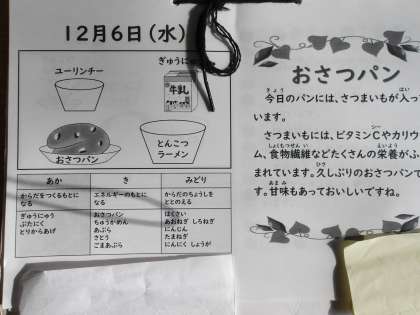 12月6日（水）
ユーリンチー
ぎゅうにゅう
牛乳
おさつパン
とんこつ
ラーメン
あか
き
みどり
からだをつくるもとに
なる
エネルギーのもとに
なる
からだのちょうしを
ととのえる
ぎゅうにゅう
ぶたにく
とりからあげ
おさつパン
ちゅうかめん
あぶら
さとう
ごまあぶら
はくさい
あおねぎ しろねぎ
にんじん
たまねぎ
にんにく しょうが
おさつパン
今日のパンには、さつまいもが入っ
きょう
はい
ています。
さつまいもには、ビタミンCやカリウ
シー
ム、食物繊維などたくさんの栄養がふ
しょくもつせんい
えいよう
まれています。久しぶりのおさつパンで
ひさ
す。甘味もあっておいしいですね。
あまみ